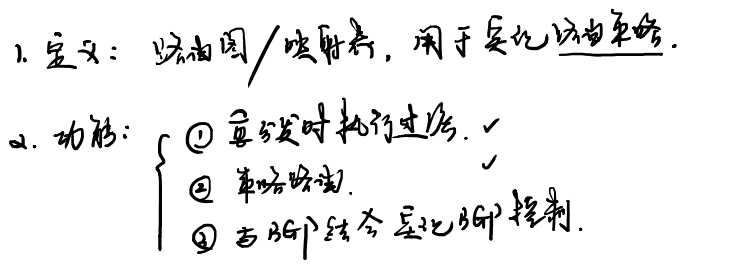 1. 定义: 路由图/映射表, 用于实现路由策略.
2. 功能:
① 重分发时执行过滤. ✓
② 策略路由. ✓
③ 与BGP结合实现BGP控制.